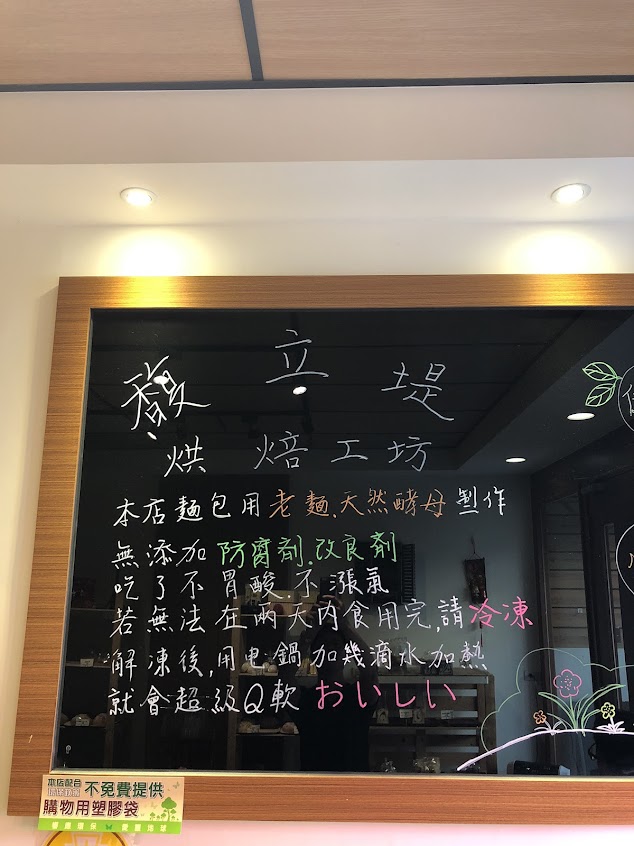 馥立堤
烘焙工坊
本店麵包用老麵.天然酵母製作
無添加防腐劑.改良劑
吃了不胃酸.不漲氣
若無法在兩天內食用完,請冷凍
解凍後,用电鍋加幾滴水加熱
就會超級Q軟おいしい
本店配合
環保政策
不免費提供
購物用塑膠袋
響應環保 愛護地球